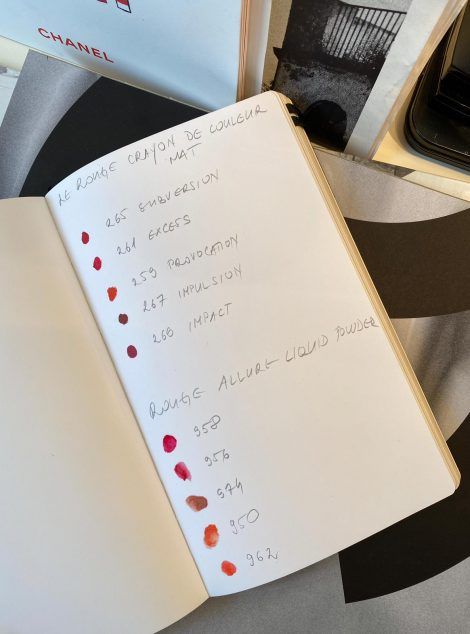 CHANEL
LE ROUGE CRAYON DE COULEUR
MAT
265 SUBVERSION
261 EXCESS
259 PROVOCATION
267 IMPULSION
268 IMPACT
ROUGE ALLURE LIQUID POWDER
958
956
974
950
962